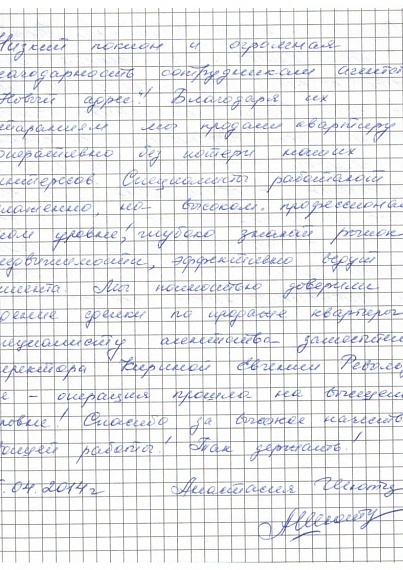 Низкий поклон и огромная
благодарность сотрудникам агентст
"Новый адрес"! Благодаря их
стараниям мы продали квартиру
оперативно без потери наших
интересов. Специалисты работают
слаженно, на высоком профессионал
ном уровне, глубоко знают рынок
недвижимости, эффективно ведут
клиента. Мы полностью доверили
ведение сделки по продаже квартиры
специалисту агентства - заместител
директора Кириной Евгении
е - операция прошла на высшем
уровне! Спасибо за высокое качеств
вашей работы! Так держать!
.04.2014г Анастасия